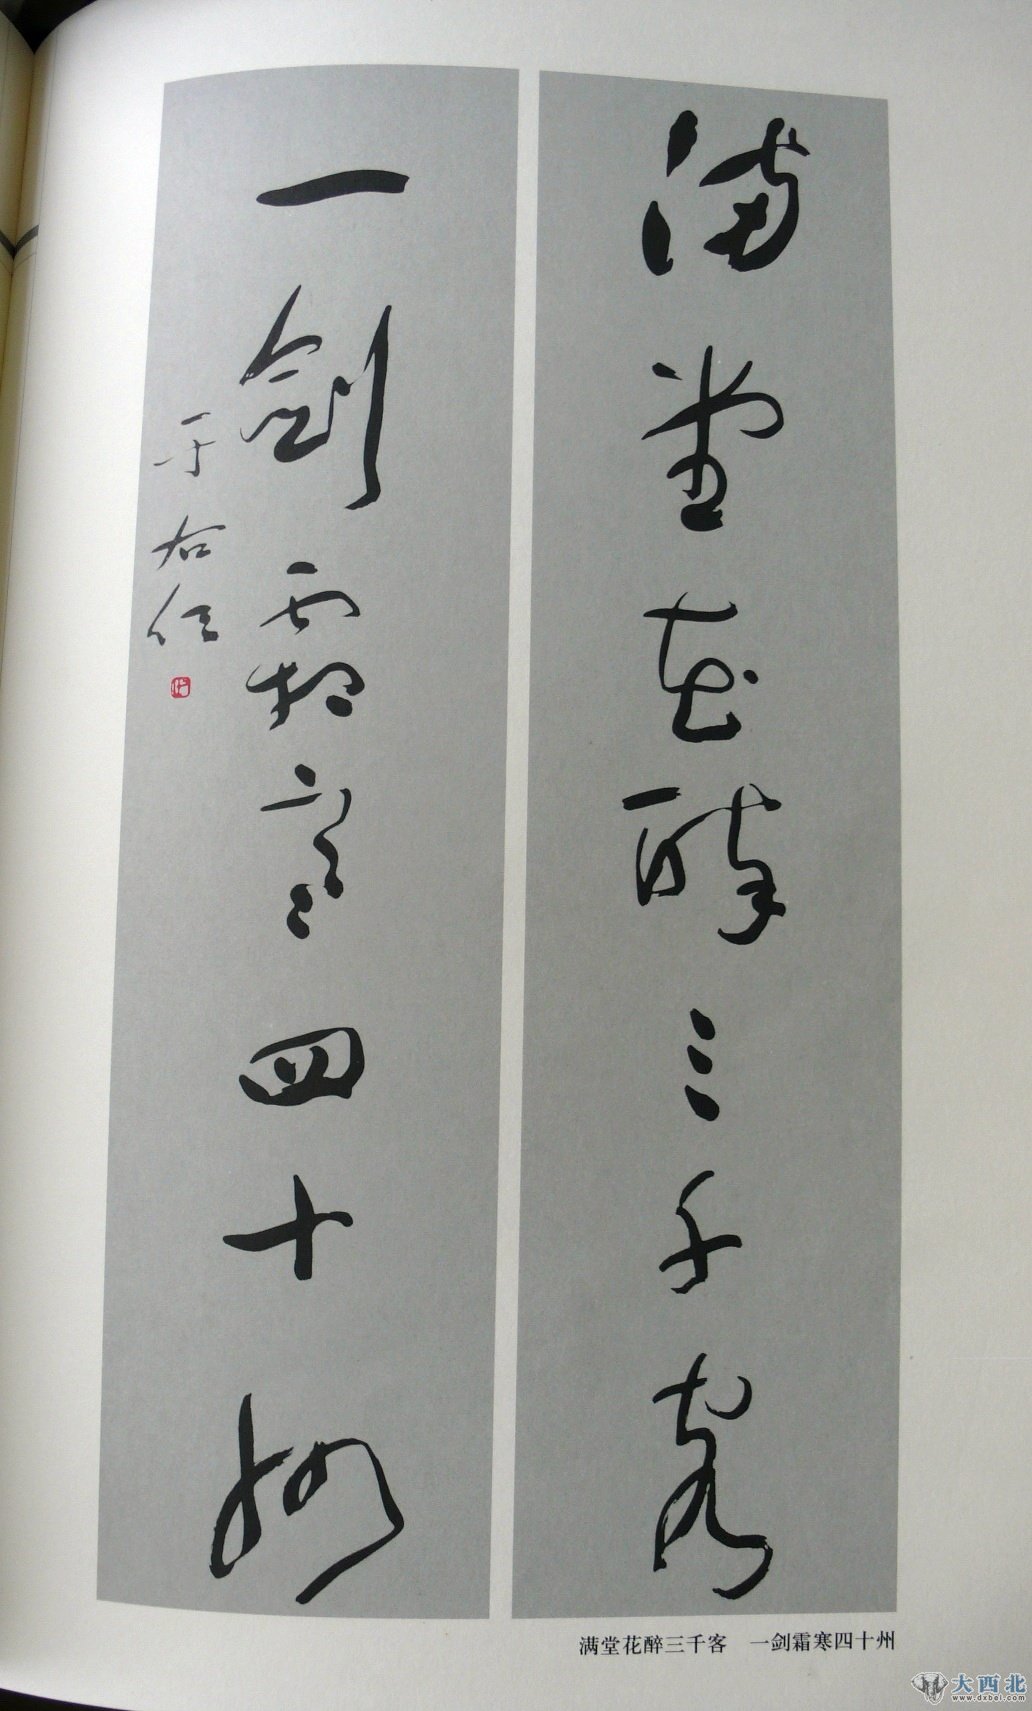 满堂花醉三千客
一剑霜寒四十州
于右任
满堂花醉三千客 一剑霜寒四十州
大西北
www.dxbei.com